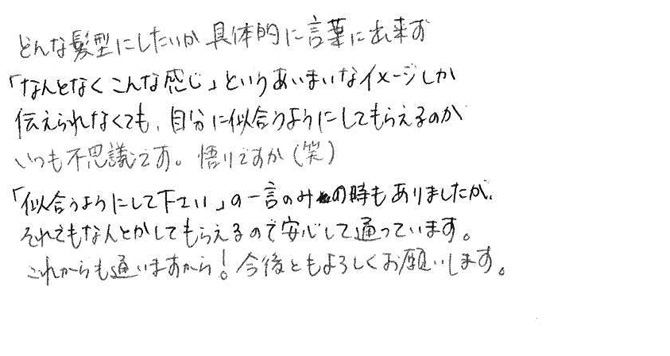 どんな髪型にしたいか具体的に言葉に出来ず
「なんとなくこんな感じ」というあいまいなイメージしか
伝えられなくても、自分に似合うようにしてもらえるのが
いつも不思議です。悟りですか(笑)
「似合うようにして下さい」の一言のみの時もありましたが、
それでもなんとかしてもらえるので安心して通っています。
これからも通いますから!今後ともよろしくお願いします。